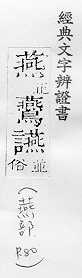 經典文字辨證書
燕並
鷰讌並俗
(燕部
R80)